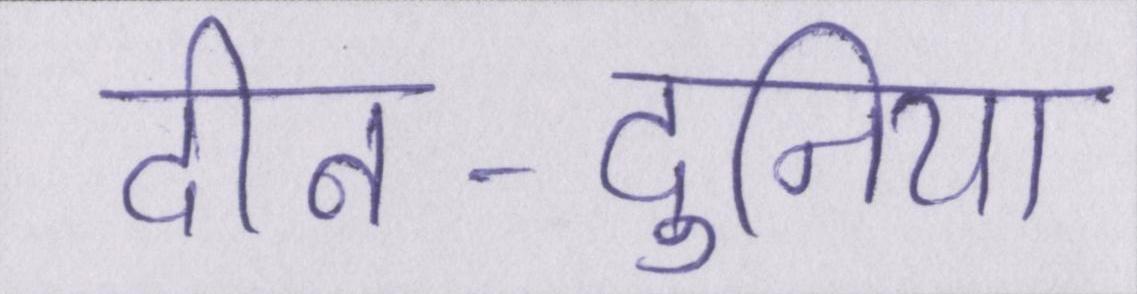 दीन-दुनिया